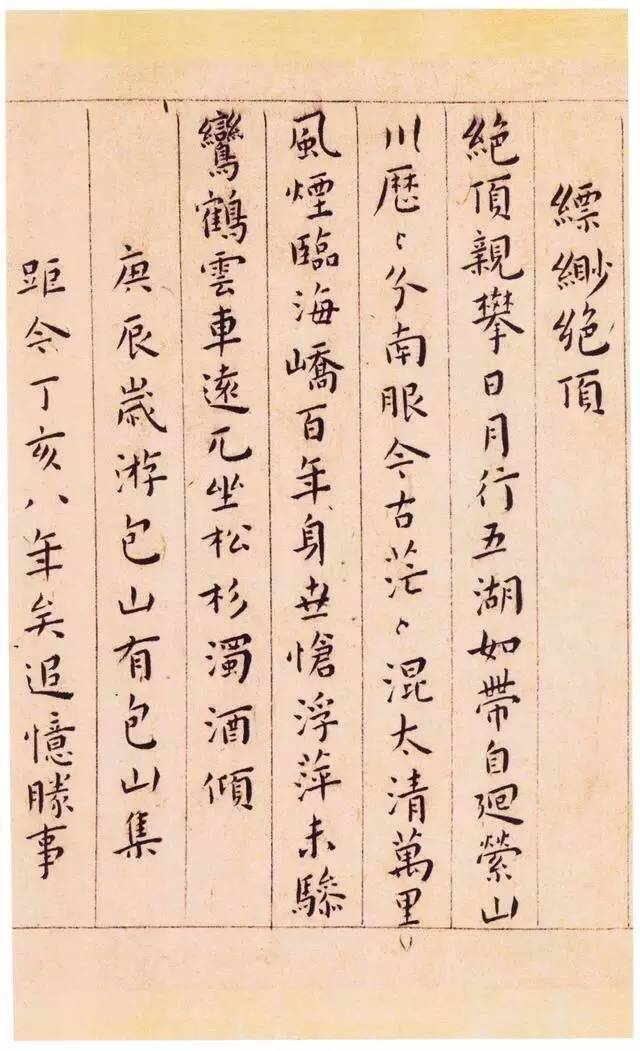 縹緲絕頂
絕頂親攀日月行五湖如帶自廻縈山
川歷〻分南眼今古茫〻混太清萬里
風煙臨海嶠百年身世愴浮萍未驂
鸞鶴雲車遠兀坐松杉濁酒傾
庚辰歲游包山有包山集
距今丁亥八年矣追憶勝事